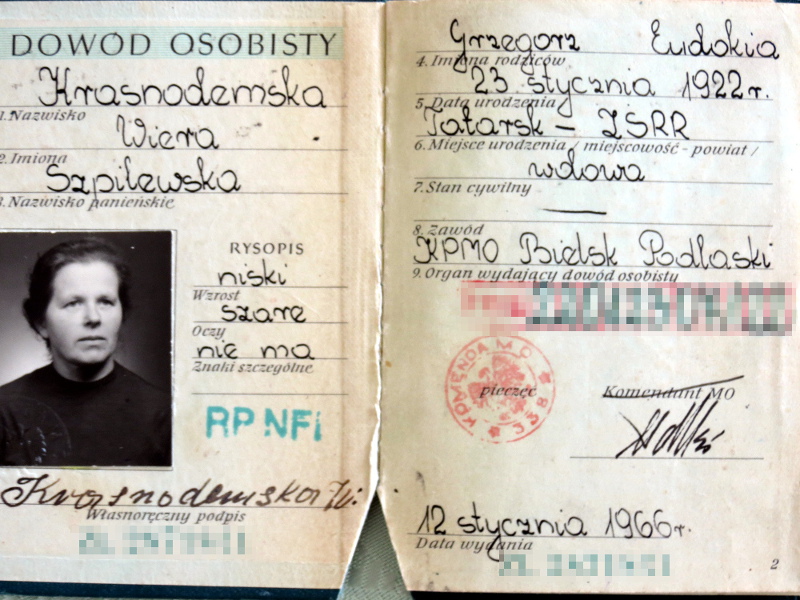 DOWÓD OSOBISTY
Krasnodemska
1. Nazwisko
Wiera
2. Imiona
Szpilewska
3. Nazwisko panieńskie
RYSOPIS
niski
Wzrost
szare
Oczy
nie ma
Znaki szczególne
RP NFi
Krasnodemska W.
Własnoręczny podpis
Grzegorz Eudokia
4. Imiona rodziców
23 stycznia 1922 r.
5. Data urodzenia
Tatarsk – ZSRR
6. Miejsce urodzenia / miejscowość - powiat /
wdowa
7. Stan cywilny
—
8. Zawód
KPMO Bielsk Podlaski
9. Organ wydający dowód osobisty
KOMENDA M O
338
pieczęć
Komendant MO
12 stycznia 1966 r.
Data wydania
2